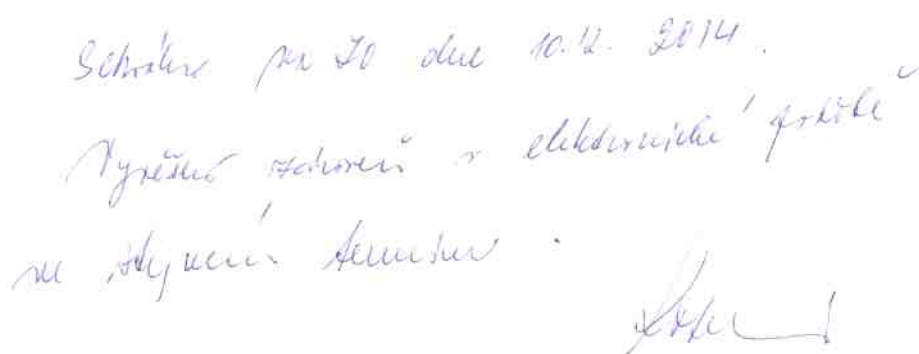 Schváleno na ZO dne 10.12. 2014.
Vyvěšeno zároveň v elektronické podobě
ve stejném termínu.